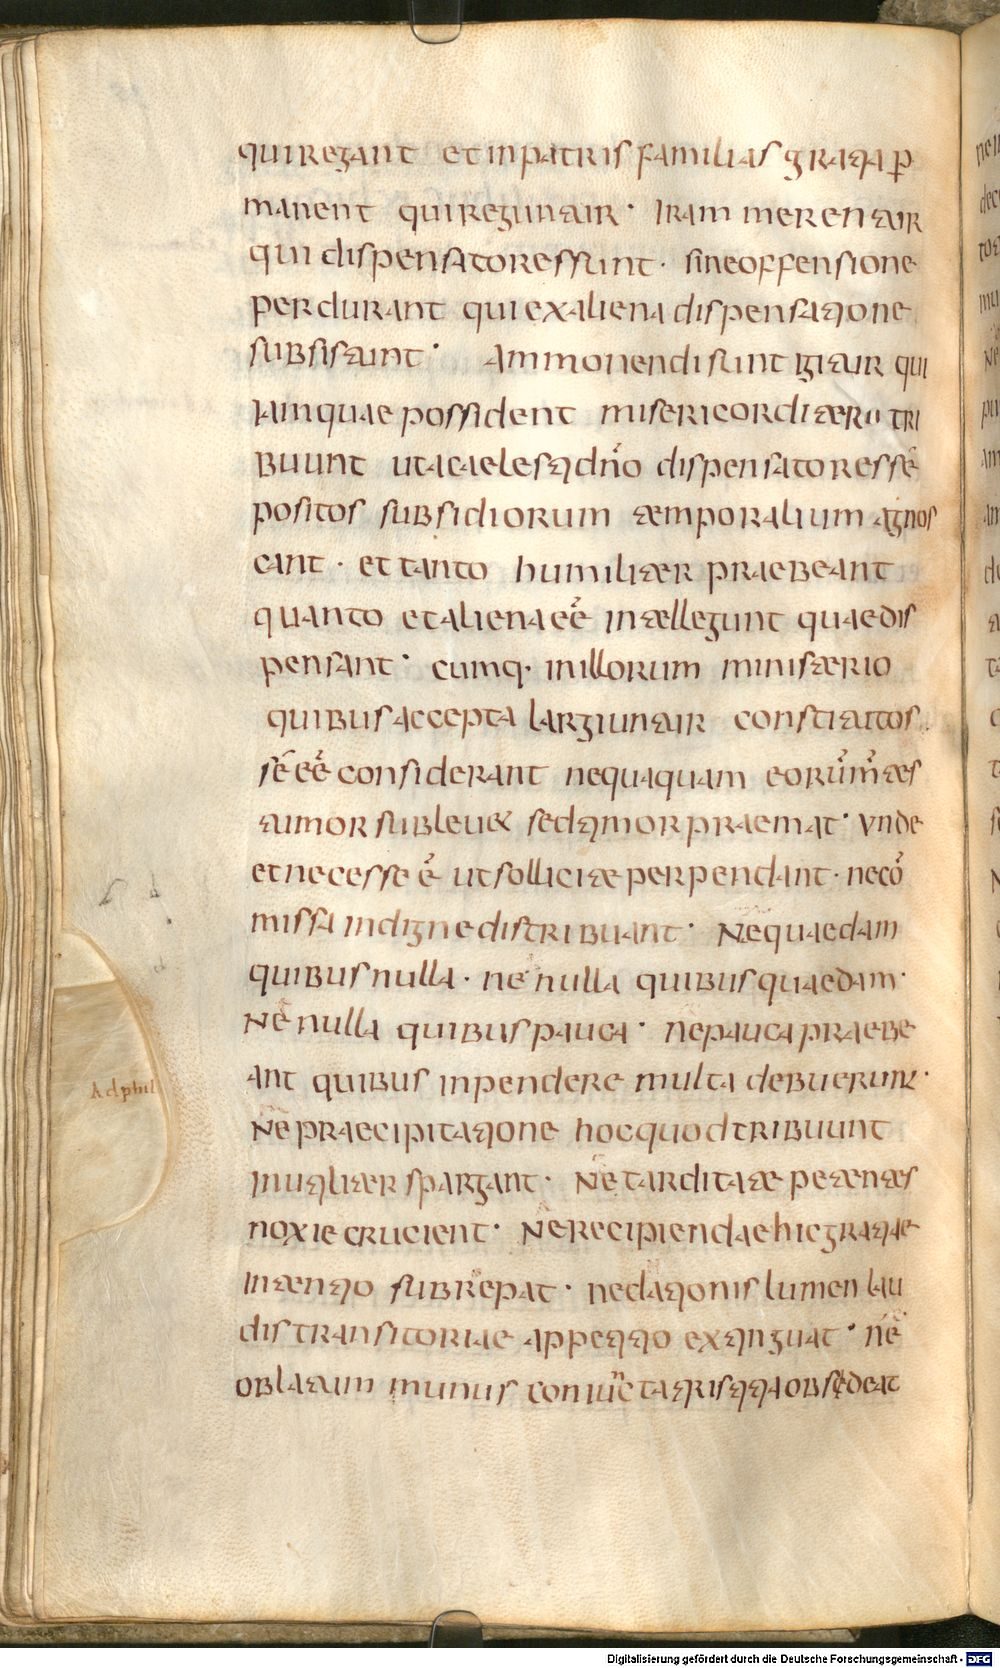 qui regant et in patris familias gratia p̱
manent qui reguntur · Iram merentur
qui dispensatores sunt · sine offensione
perdurant qui ex aliena dispensatione
subsistunt · Ammonendi sunt igitur qui
iam quae possident misericorditer tri
buunt ut a caelesti dño dispensatores sē
positos subsidiorum temporalium agnos
cant · et tanto humiliter praebeant
quanto et aliena eē intellegunt quae dis
pensant · cumq· in illorum ministerio
quibus accepta largiuntur constitutos
sē eē considerant nequaquam eorū m̄tes
tumor subleuet sed timor praemat · Vnde
et necesse ē ut sollicite perpendant · ne cō
missa indigne distribuant · Ne quaedam
quibus nulla · ne nulla quibus quaedam ·
Ne nulla quibus pauca · ne pauca praebe
ant quibus inpendere multa debuerunt ·
Ne praecipitatione hoc quod tribuunt
inutiliter spargant · Ne tarditate petentes
noxie crucient · Ne recipiendae hic gratiae
intentio subrepat · ne dationis lumen lau
dis transitoriae appetitio extinguat · ne
oblatum munus coniūcta tristitia obsedeat
Ad phil
Digitalisierung gefördert durch die Deutsche Forschungsgemeinschaft - DFG